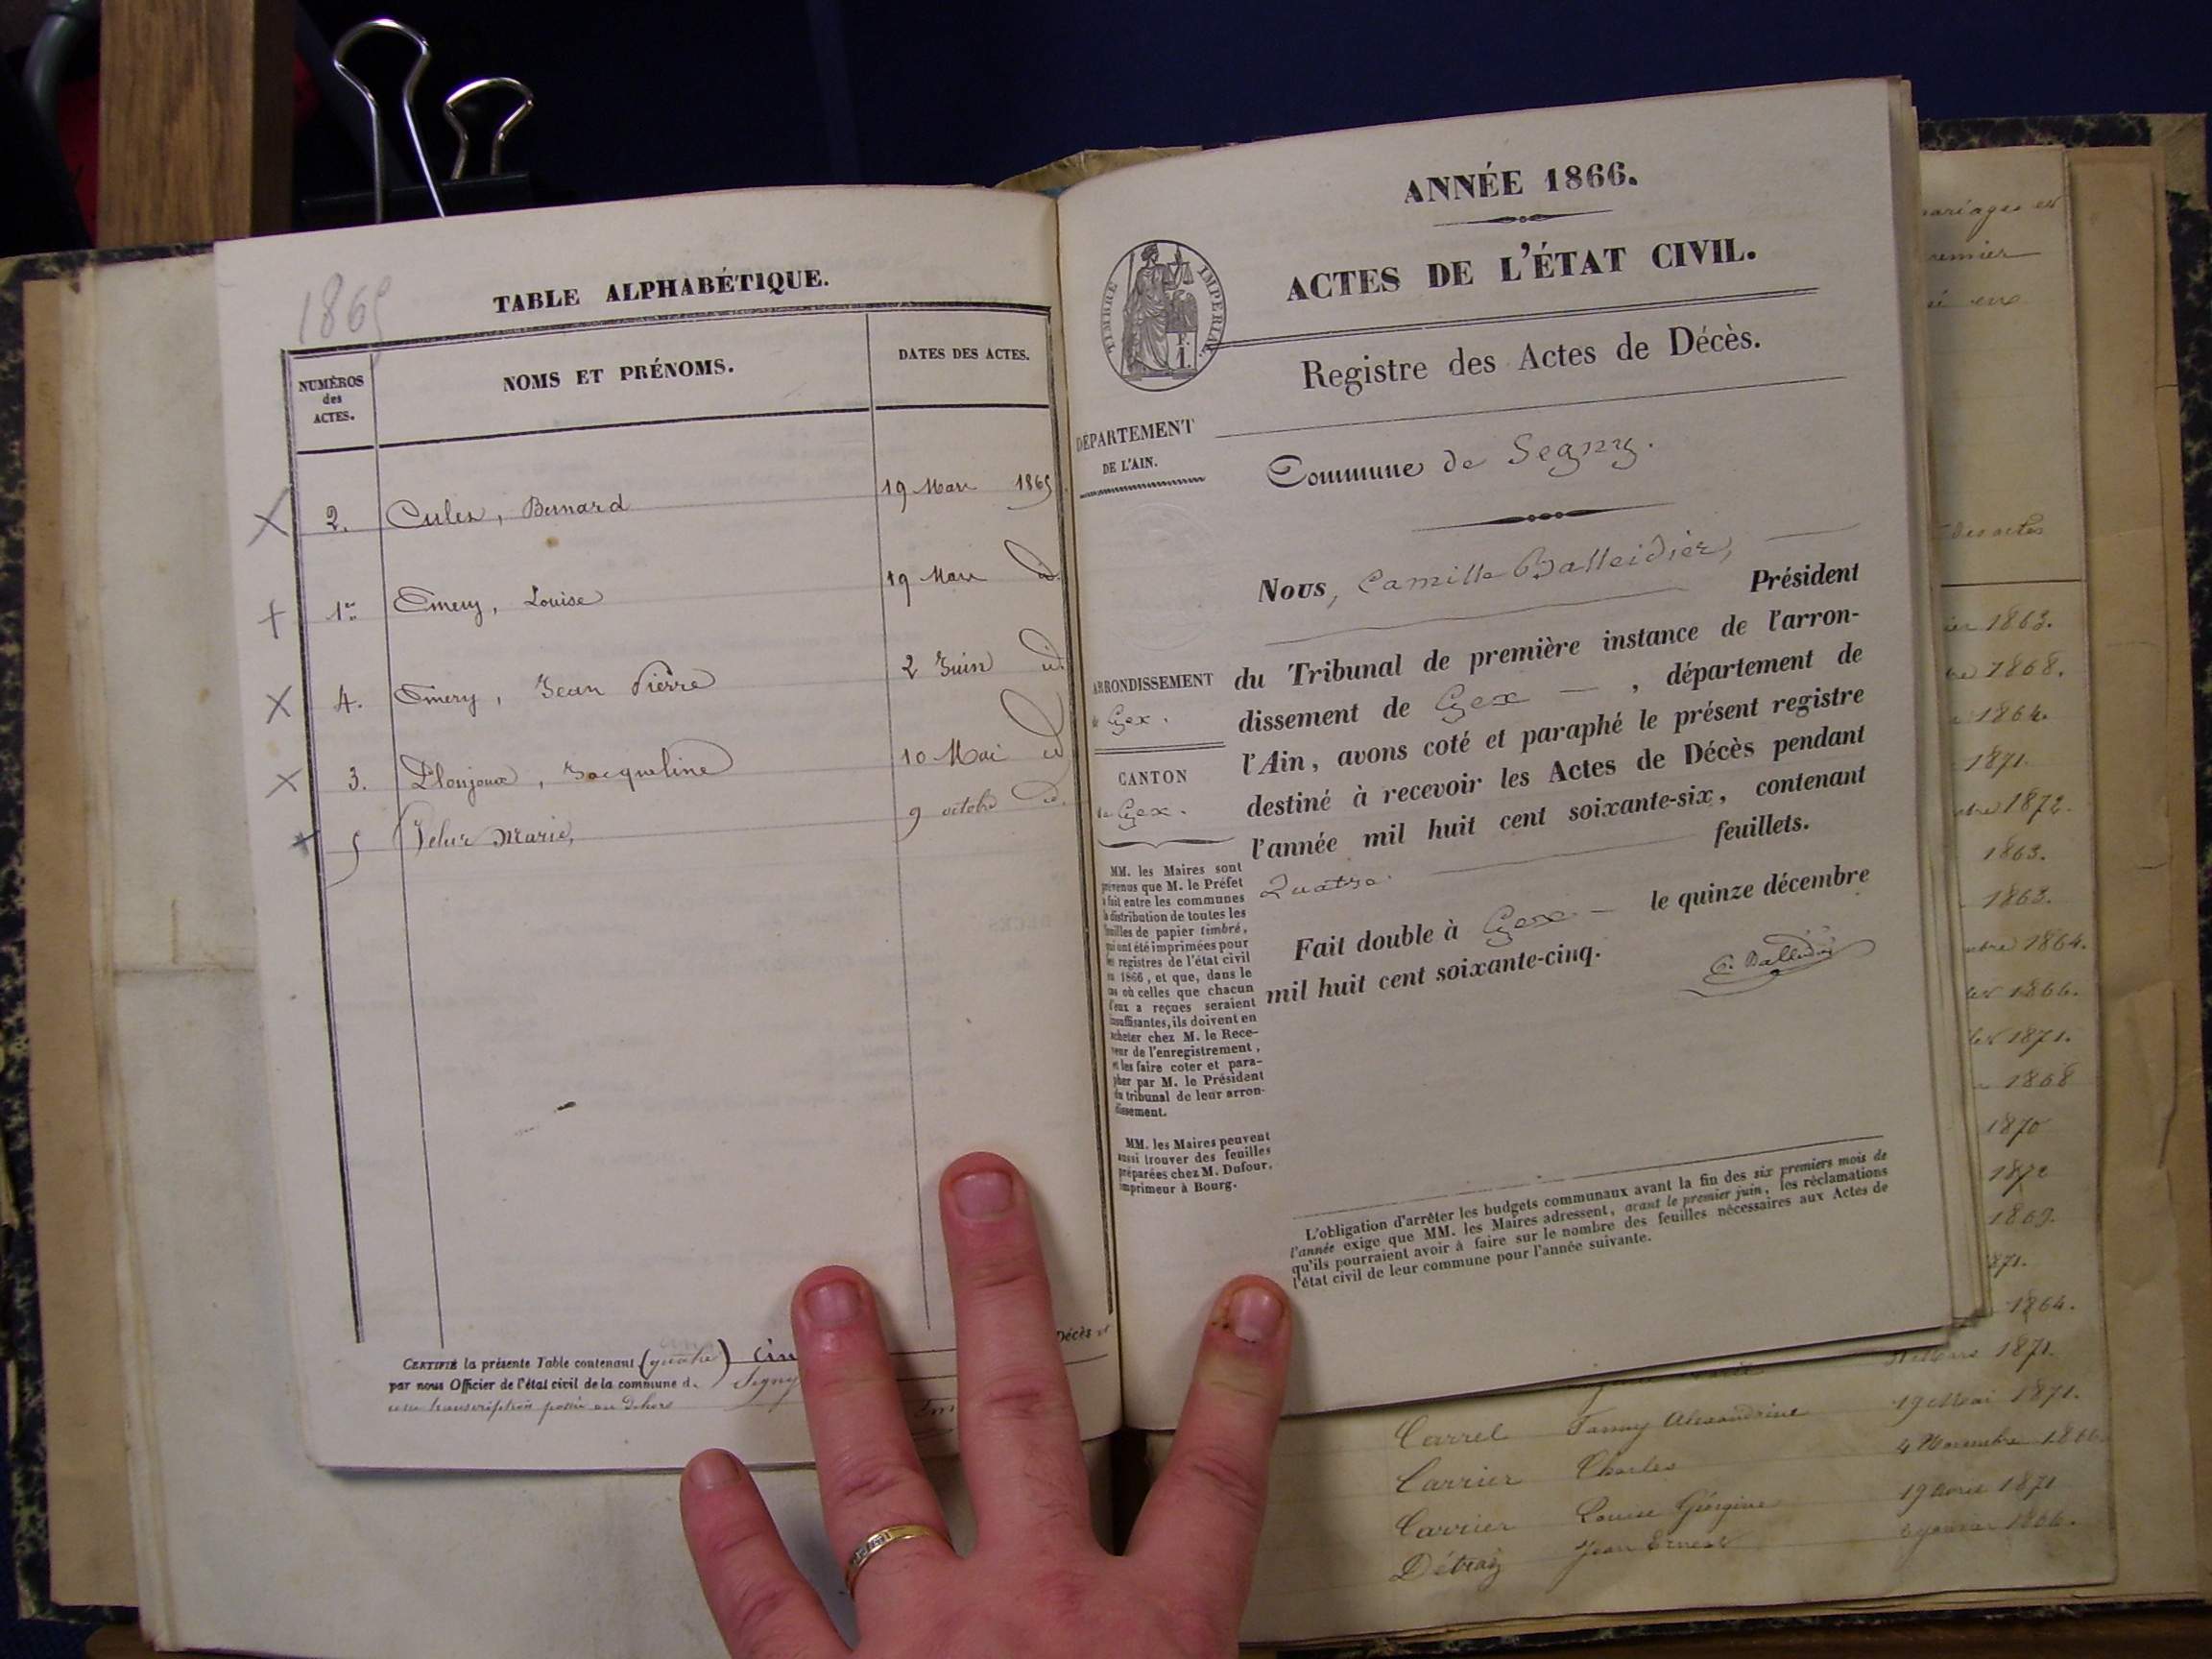 1865
TABLE ALPHABÉTIQUE.
NUMÉROS des ACTES.
NOMS ET PRÉNOMS.
DATES DES ACTES.
2. Bernard 19 Mars 1865
1er Emery, Louise 19 Mars id.
4. Emery, Jean Pierre 2 Juin id.
3. Jacqueline 10 Mai id
5 Marie, 9 octobre id.
CERTIFIÉ la présente Table contenant (quatre) cin
Décès et
par nous Officier de l'état civil de la commune d. Segny
une transcription
ANNÉE 1866.
ACTES DE L'ÉTAT CIVIL.
TIMBRE IMPERIAL.
F. 1.
Registre des Actes de Décès.
DÉPARTEMENT
DE L'AIN.
Commune de Segny.
Nous, Camille Balleidier,
Président
du Tribunal de première instance de l'arron-
dissement de Gex — , département de
l'Ain, avons coté et paraphé le présent registre
destiné à recevoir les Actes de Décès pendant
l'année mil huit cent soixante-six, contenant
Quatre feuillets.
Fait double à Gex — le quinze décembre
mil huit cent soixante-cinq.
C. Balleidier
ARRONDISSEMENT
de Gex.
CANTON
de Gex.
MM. les Maires sont
prévenus que M. le Préfet
a fait entre les communes
la distribution de toutes les
feuilles de papier timbré,
qui ont été imprimées pour
les registres de l'état civil
en 1866, et que, dans le
cas où celles que chacun
d'eux a reçues seraient
insuffisantes, ils doivent en
acheter chez M. le Rece-
veur de l'enregistrement,
et les faire coter et para-
pher par M. le Président
du tribunal de leur arron-
dissement.
MM. les Maires peuvent
aussi trouver des feuilles
préparées chez M. Dufour,
imprimeur à Bourg.
L'obligation d'arrêter les budgets communaux avant la fin des six premiers mois de
l'année exige que MM. les Maires adressent, avant le premier juin, les réclamations
qu'ils pourraient avoir à faire sur le nombre des feuilles nécessaires aux Actes de
l'état civil de leur commune pour l'année suivante.
mariages et
premier
des actes
1863.
1868.
1864.
1871.
1872.
1863.
1863.
1864.
1866.
1871.
1868
1870
1872
1869.
1871.
1864.
Mars 1871.
Carrel Fanny Alexandrine 19 Mai 1871.
Carrier Charles 4 Novembre 1866
Carrier Louise Géorgine 19 Avril 1871
Détraz Jean Ernest Janvier 1866.